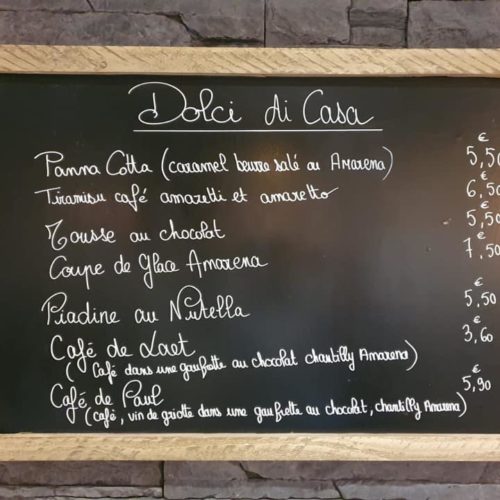 Dolci di Casa
Panna Cotta (caramel beurre salé ou Amarena) 5,50 €
Tiramisu café amaretti et amaretto 6,50 €
Mousse au chocolat 5,50 €
Coupe de Glace Amarena 7,50 €
Piadine au Nutella 5,50 €
Café de Laet 3,60 €
(Café dans une gaufrette au chocolat chantilly Amarena)
Café de Paul 5,90 €
(café, vin de griotte dans une gaufrette au chocolat, chantilly Amarena)